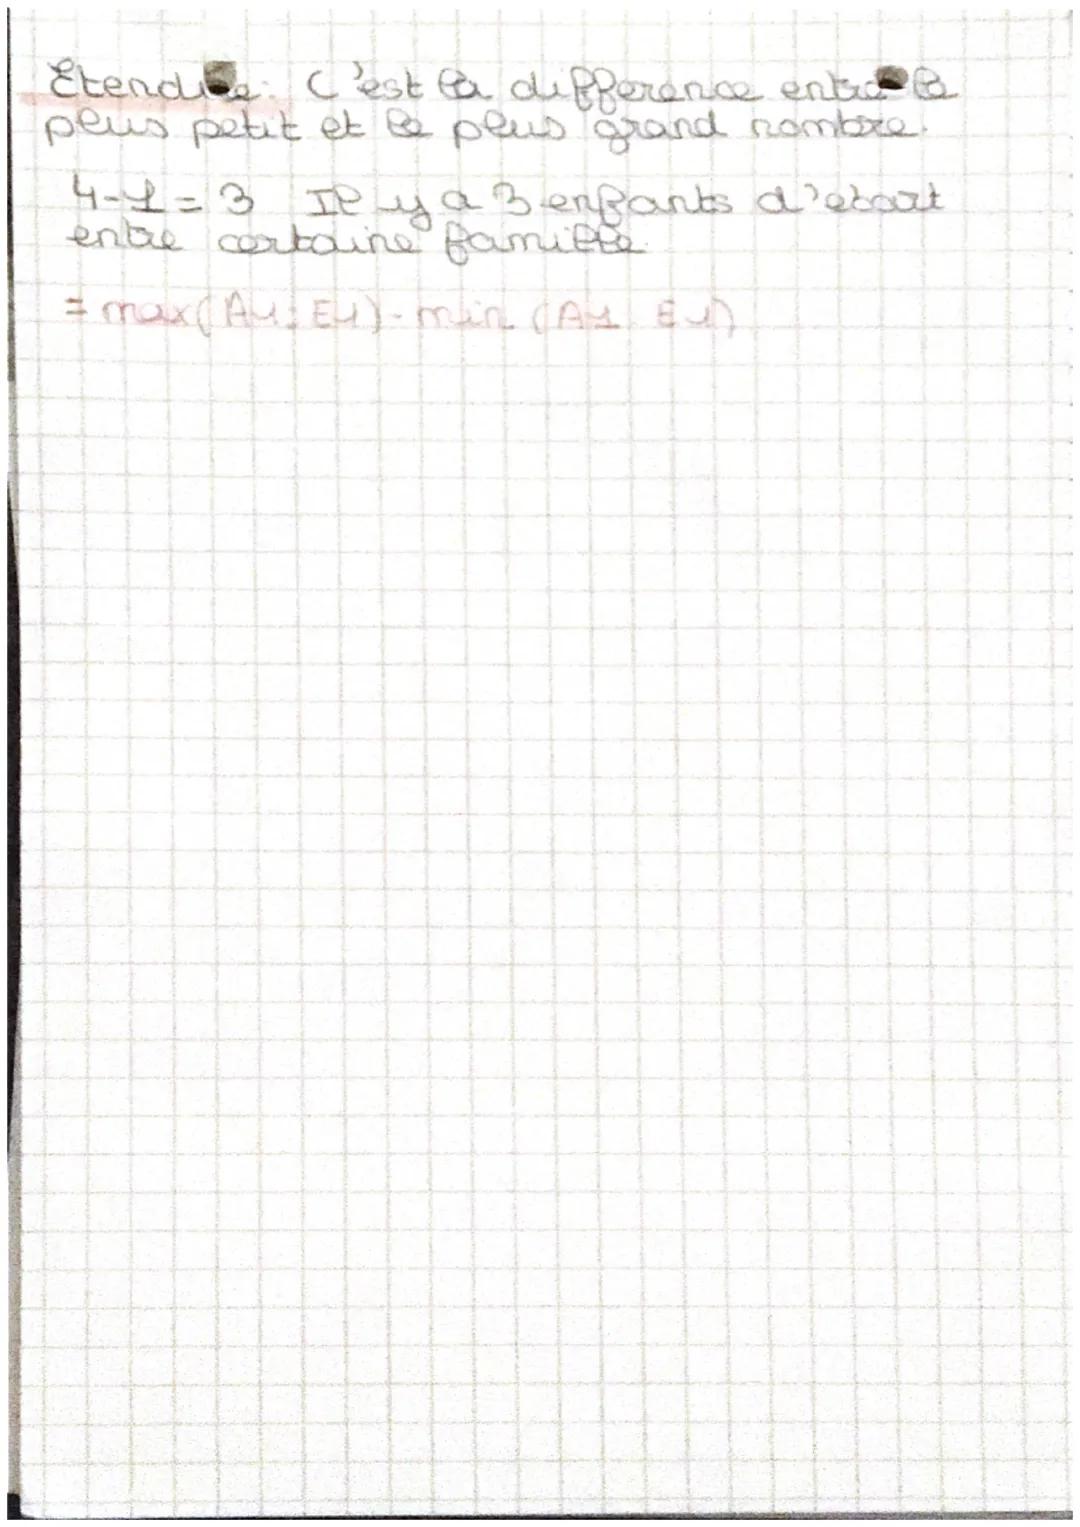 Etendue: C'est la difference entre le
plus petit et le plus grand nombre.
4-1=3 Il y a 3 enfants d'ecart
entre certaine famille.
=max(A1:E1)-min(A1 E1)